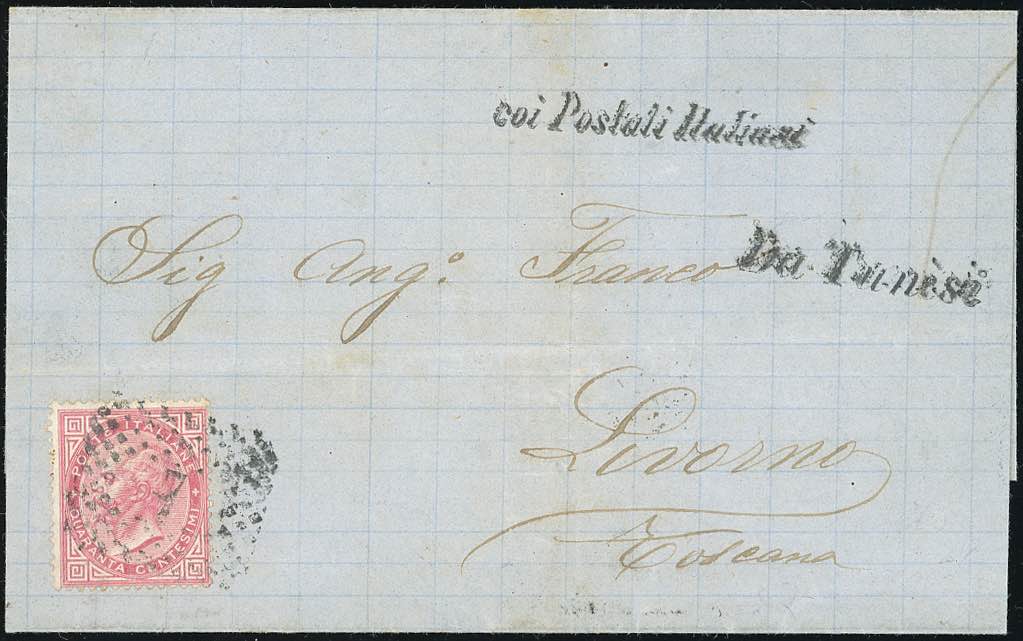 coi Postali Italiani
Sig Ang.º Franco
Da Tunisi
Livorno
Toscana
POSTE ITALIANE
QUARANTA CENTESIMI